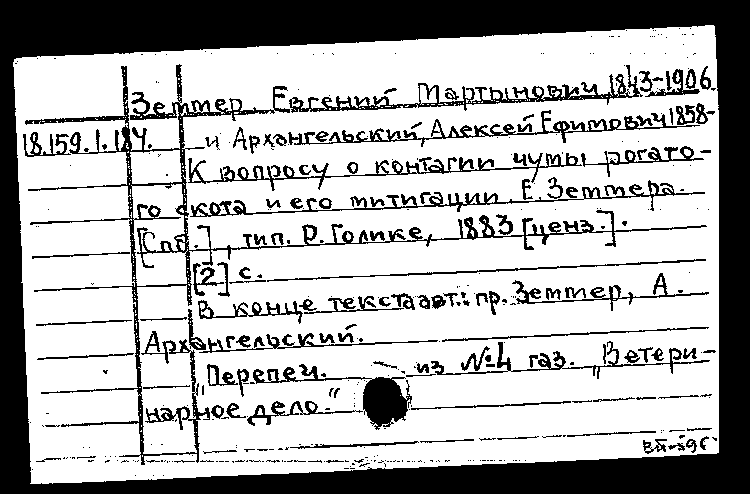 Земмер, Евгений Мартынович, 1843-1906
18.159.1.184. и Архангельский, Алексей Ефимович 1858-
К вопросу о контагии чумы рогато-
го скота и его митигации Е. Земмера.
[Спб.], тип. Р. Голике, 1883 [ценз.].
[2] с.
В конце текста авт.: пр. Земмер, А.
Архангельский.
"Перепеч. из №4 газ. "Ветери-
нарное дело."